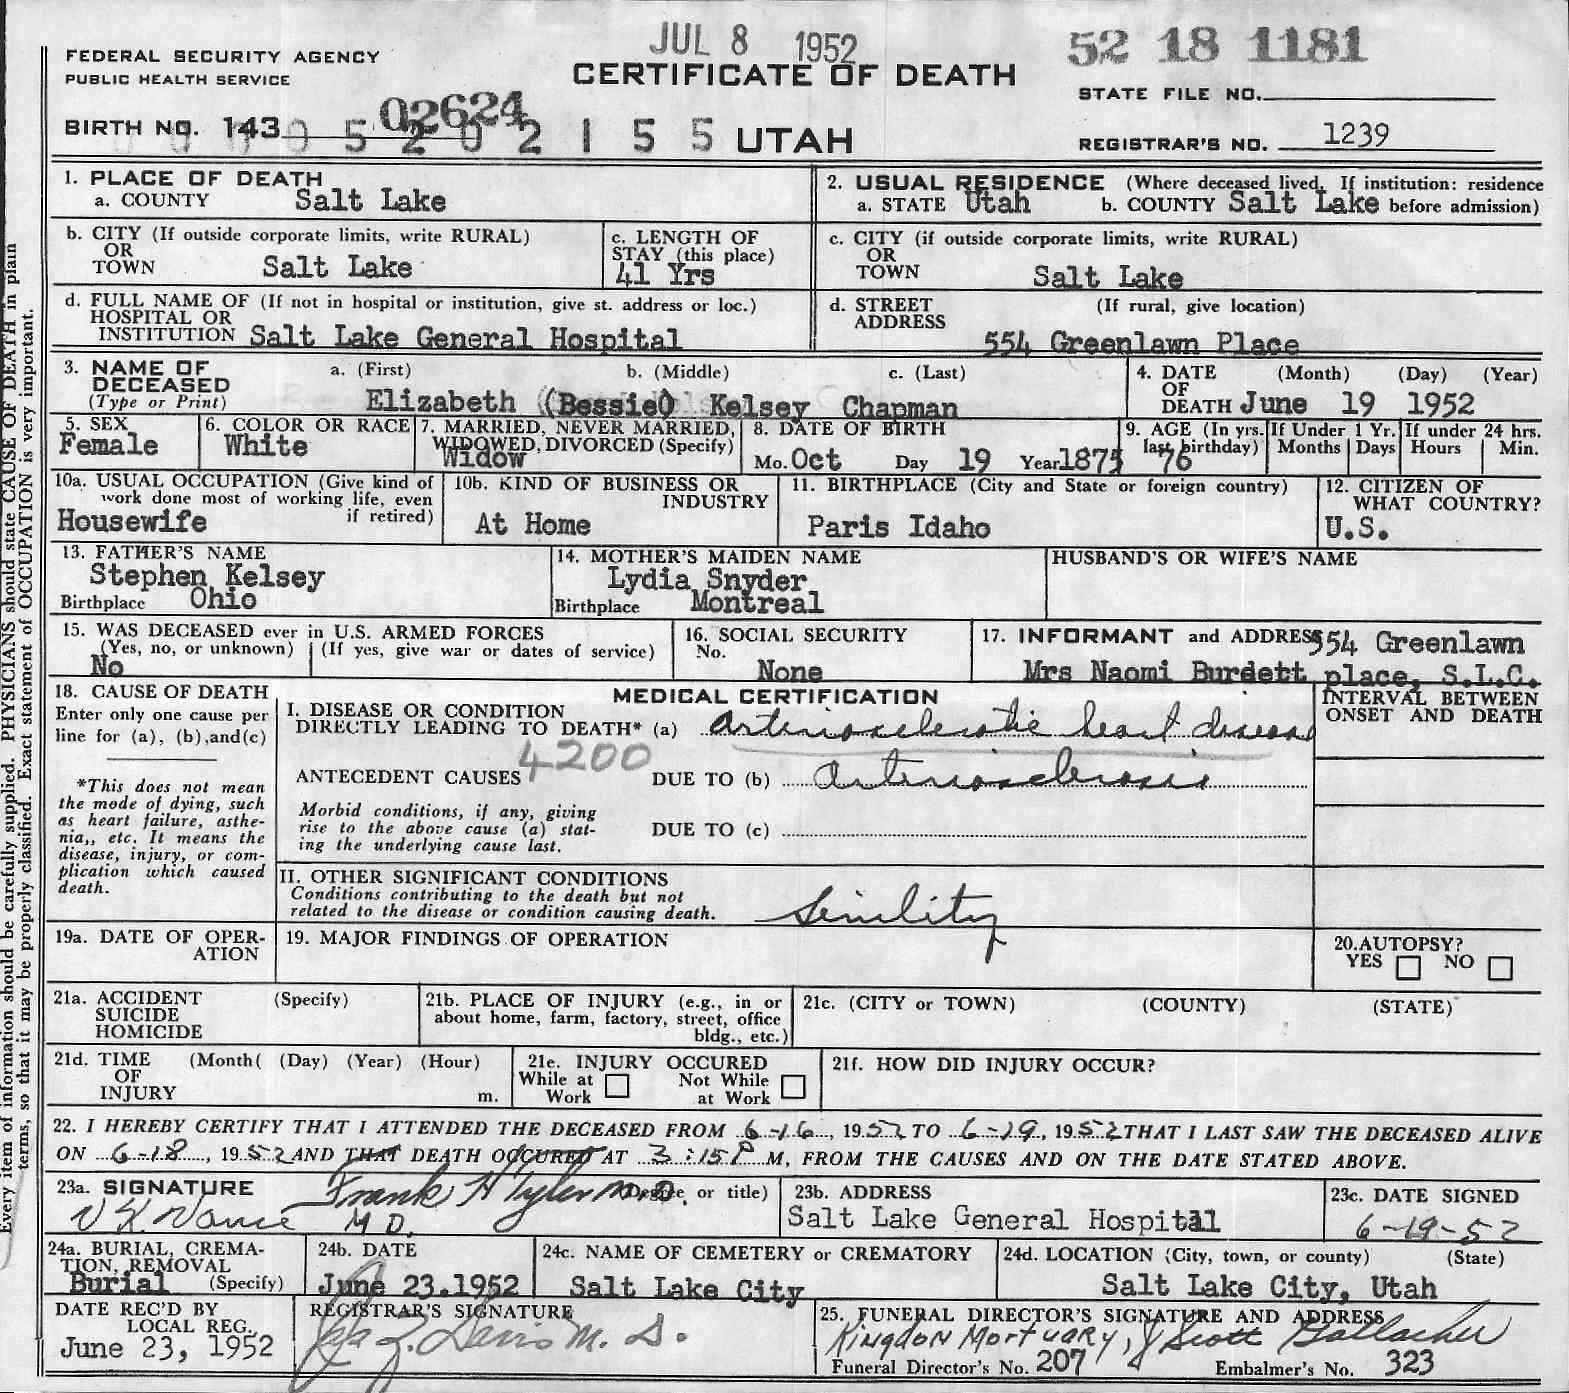 JUL 8 1952
52 18 1181
FEDERAL SECURITY AGENCY
PUBLIC HEALTH SERVICE
CERTIFICATE OF DEATH
STATE FILE NO.
02624
BIRTH NO. 143
5 2 0 2 1 5 5
UTAH
REGISTRAR'S NO. 1239
Every item of information should be carefully supplied. PHYSICIANS should state CAUSE OF DEATH in plain
terms, so that it may be properly classified. Exact statement of OCCUPATION is very important.
1. PLACE OF DEATH
a. COUNTY Salt Lake
2. USUAL RESIDENCE (Where deceased lived. If institution: residence
a. STATE Utah b. COUNTY Salt Lake before admission)
b. CITY (If outside corporate limits, write RURAL)
OR
TOWN Salt Lake
c. LENGTH OF
STAY (this place)
41 Yrs
c. CITY (if outside corporate limits, write RURAL)
OR
TOWN Salt Lake
d. FULL NAME OF (If not in hospital or institution, give st. address or loc.)
HOSPITAL OR
INSTITUTION Salt Lake General Hospital
d. STREET (If rural, give location)
ADDRESS
554 Greenlawn Place
3. NAME OF a. (First) b. (Middle) c. (Last)
DECEASED
(Type or Print) Elizabeth (Bessie) Kelsey Chapman
4. DATE (Month) (Day) (Year)
OF
DEATH June 19 1952
5. SEX
Female
6. COLOR OR RACE
White
7. MARRIED, NEVER MARRIED,
WIDOWED, DIVORCED (Specify)
Widow
8. DATE OF BIRTH
Mo. Oct Day 19 Year 1875
9. AGE (In yrs. last birthday)
76
If Under 1 Yr.
Months Days
If under 24 hrs.
Hours Min.
10a. USUAL OCCUPATION (Give kind of
work done most of working life, even
if retired)
Housewife
10b. KIND OF BUSINESS OR
INDUSTRY
At Home
11. BIRTHPLACE (City and State or foreign country)
Paris Idaho
12. CITIZEN OF
WHAT COUNTRY?
U.S.
13. FATHER'S NAME
Stephen Kelsey
Birthplace Ohio
14. MOTHER'S MAIDEN NAME
Lydia Snyder
Birthplace Montreal
HUSBAND'S OR WIFE'S NAME
15. WAS DECEASED ever in U.S. ARMED FORCES
(Yes, no, or unknown) (If yes, give war or dates of service)
No
16. SOCIAL SECURITY
No.
None
17. INFORMANT and ADDRESS 554 Greenlawn
Mrs Naomi Burdett place, S.L.C.
18. CAUSE OF DEATH
Enter only one cause per
line for (a), (b),and(c)
*This does not mean
the mode of dying, such
as heart failure, asthe-
nia,, etc. It means the
disease, injury, or com-
plication which caused
death.
MEDICAL CERTIFICATION
INTERVAL BETWEEN
ONSET AND DEATH
I. DISEASE OR CONDITION
DIRECTLY LEADING TO DEATH* (a) Arteriosclerotic heart disease
4200
ANTECEDENT CAUSES DUE TO (b) arteriosclerosis
Morbid conditions, if any, giving
rise to the above cause (a) stat-
ing the underlying cause last.
DUE TO (c)
II. OTHER SIGNIFICANT CONDITIONS
Conditions contributing to the death but not
related to the disease or condition causing death.
Senility
19a. DATE OF OPER-
ATION
19. MAJOR FINDINGS OF OPERATION
20.AUTOPSY?
YES NO
21a. ACCIDENT (Specify)
SUICIDE
HOMICIDE
21b. PLACE OF INJURY (e.g., in or
about home, farm, factory, street, office
bldg., etc.)
21c. (CITY or TOWN) (COUNTY) (STATE)
21d. TIME (Month( (Day) (Year) (Hour)
OF
INJURY m.
21e. INJURY OCCURED
While at Work Not While at Work
21f. HOW DID INJURY OCCUR?
22. I HEREBY CERTIFY THAT I ATTENDED THE DECEASED FROM 6-16, 1952 TO 6-19, 1952 THAT I LAST SAW THE DECEASED ALIVE
ON 6-18, 1952 AND THAT DEATH OCCURED AT 3:15 P M, FROM THE CAUSES AND ON THE DATE STATED ABOVE.
23a. SIGNATURE Frank H Tyler M.D. (Degree or title)
V K Vance M D.
23b. ADDRESS
Salt Lake General Hospital
23c. DATE SIGNED
6-19-52
24a. BURIAL, CREMA-
TION, REMOVAL
Burial (Specify)
24b. DATE
June 23.1952
24c. NAME OF CEMETERY or CREMATORY
Salt Lake City
24d. LOCATION (City, town, or county) (State)
Salt Lake City, Utah
DATE REC'D BY
LOCAL REG.
June 23, 1952
REGISTRAR'S SIGNATURE
Davis M. D.
25. FUNERAL DIRECTOR'S SIGNATURE AND ADDRESS
Kingdon Mortuary, J Scott Gallacher
Funeral Director's No. 207 Embalmer's No. 323